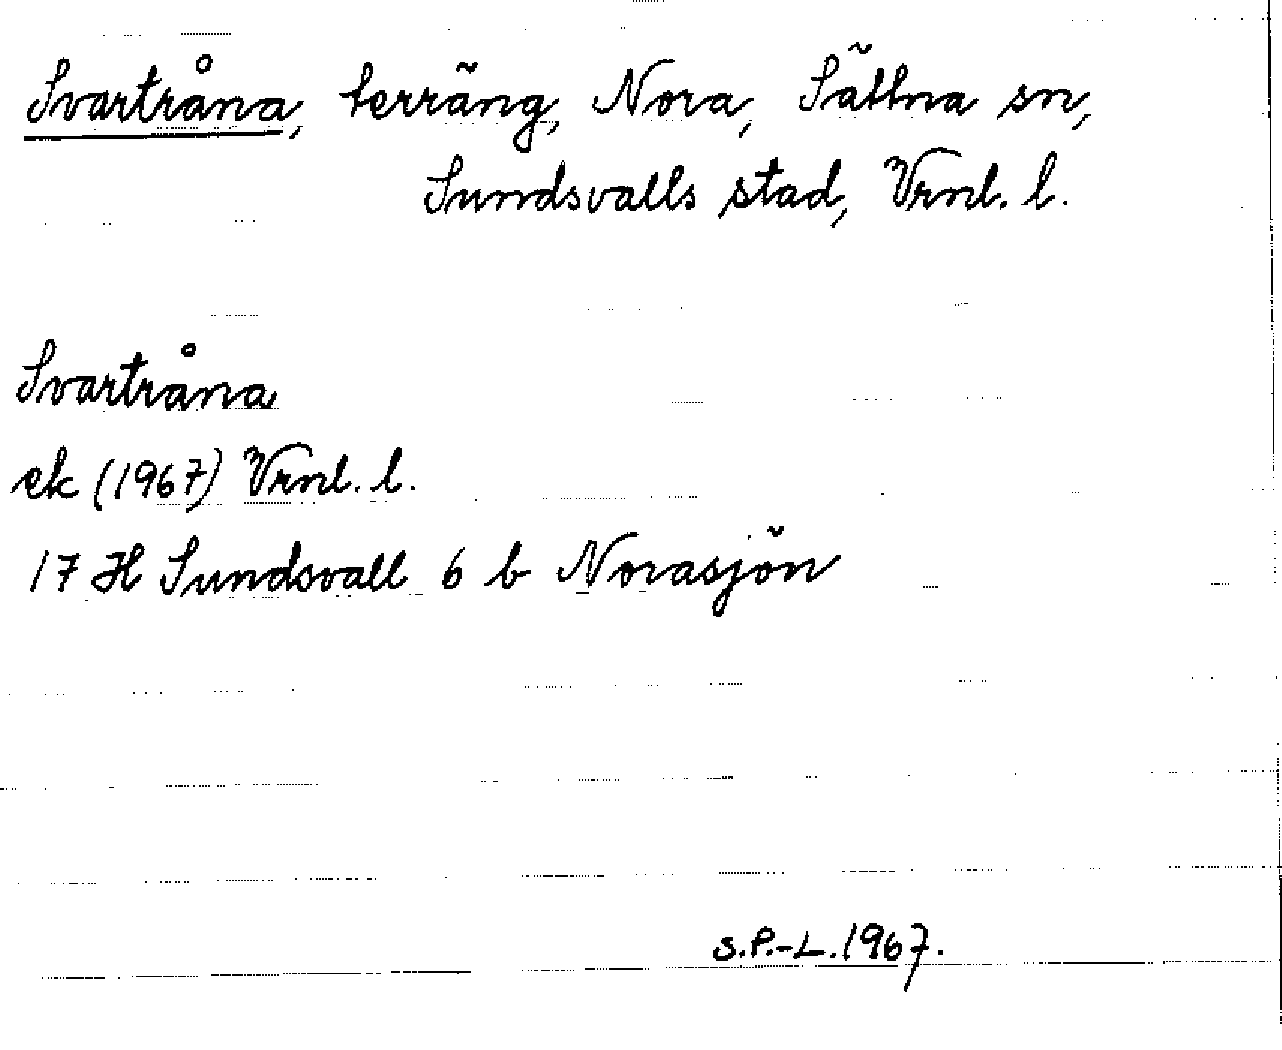 Svartråna, terräng, Nora, Sättna sn,
Sundsvalls stad, Vrnl. l.
Svartråna
ek (1967) Vrnl. l.
17 H Sundsvall 6 b Norasjön
S.P.-L. 1967.